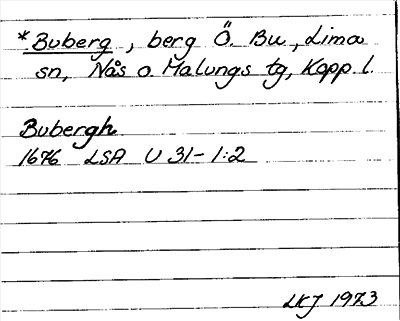 *Buberg, berg Ö. Bu, Lima
sn, Nås o. Malungs tg, Kopp. l.
Bubergh
1676 LSA U 31-1:2
LKJ 1973